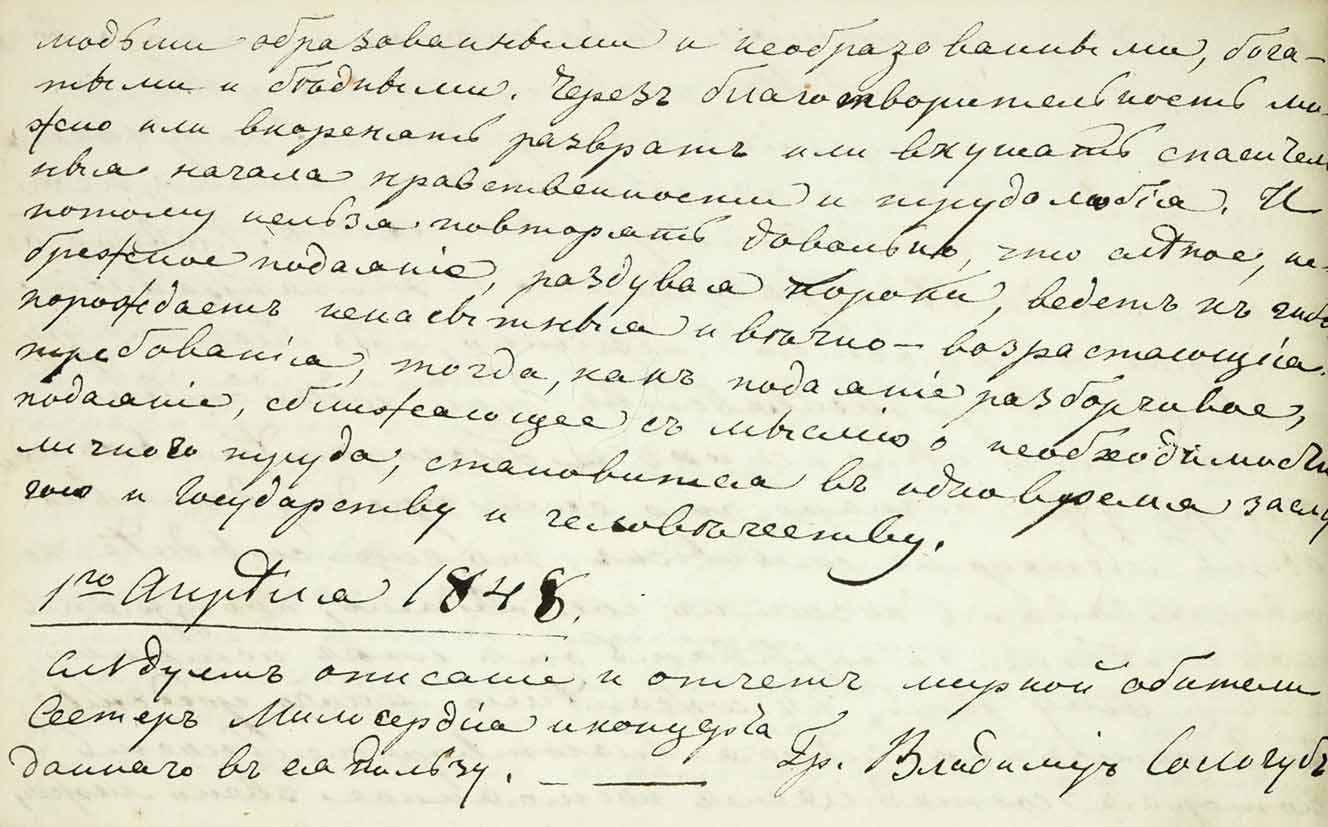 людьми образованными и необразованными, бога-
тыми и бѣдными. Чрезъ благотворительность мо-
жно или вкоренять развратъ или внушать спасител
ныя начала нравственности и трудолюбія. И
потому нельзя повторять довольно, что слѣпое, не-
брежное подаяніе, раздувая пороки, ведетъ къ
порождаетъ ненасытныя и вѣчно-возрастающія
требованія, тогда, какъ подаяніе разборчивое,
подаяніе, сближающее съ мыслію о необходимости
личного труда, становится въ одно время заслу
гою и Государству и человѣчеству.
1го Апрѣля 1848.
Слѣдуетъ описаніе и отчетъ мирной обители
Сестеръ Милосердія и концерта
даннаго въ ея пользу. — Гр. Владимиръ Сологубъ